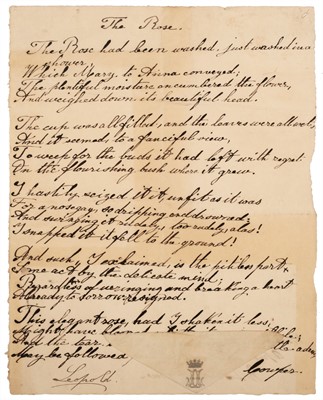 The Rose.
The Rose had been washed, just washed in a
shower,
Which Mary to Anna conveyed,
The plentiful moisture encumbered the flower,
And weighed down its beautiful head.
The cup was all filled, and the leaves were all wet,
And it seemed, to a fanciful view,
To weep for the buds it had left with regret
On the flourishing bush where it grew.
I hastily seized it, unfit as it was
For a nosegay, so dripping and drowned,
And swinging it rudely, too rudely, alas!
I snapped it, it fell to the ground!
And such, I exclaimed, is the pitiless part
Some act by the delicate mind,
Regardless of wringing and breaking a heart
Already to sorrow resigned.
This elegant rose, had I shaken it less,
Might have bloomed
And the tear
May be followed
Cowper.
Leopold